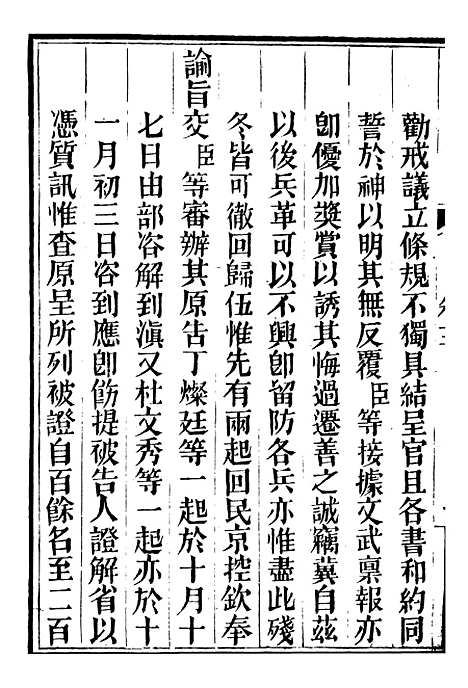 勸戒議立條規不獨具結呈官且各書和約同
誓於神以明其無反覆臣等接據文武稟報亦
卽優加獎賞以誘其悔過遷善之誠竊冀自茲
以後兵革可以不興卽留防各兵亦惟盡此殘
冬皆可徹回歸伍惟先有兩起回民京控欽奉
諭旨交臣等審辦其原告丁燦廷等一起於十月十
七日由部咨解到滇又杜文秀等一起亦於十
一月初三日咨到應卽飭提被告人證解省以
憑質訊惟查原呈所列被證自百餘名至二百